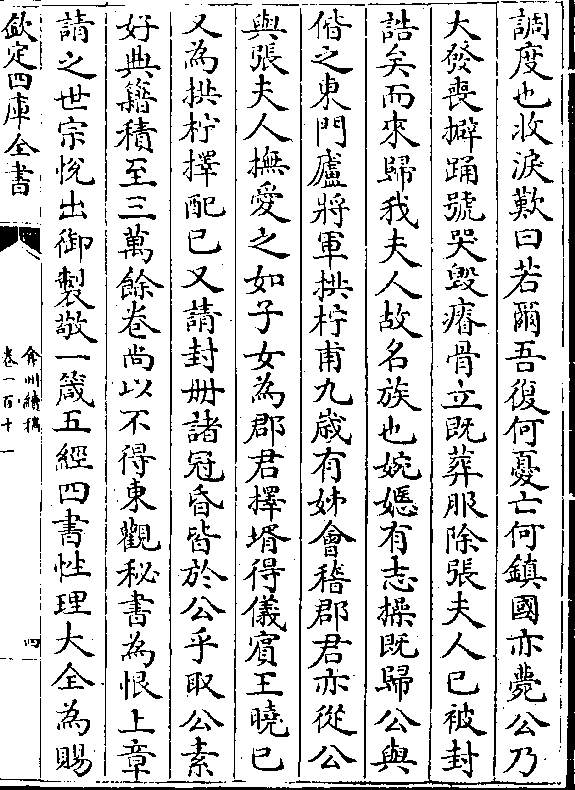 調度也收淚歎曰若爾吾復何憂亡何鎮國亦薨公乃
大發喪擗踊號哭毀瘠骨立既葬服除張夫人已被封
誥矣而來歸我夫人故名族也婉嫕有志操既歸公與
偕之東門廬將軍拱柠甫九歲有姊會稽郡君亦從公
與張夫人撫愛之如子女為郡君擇壻得儀賓王曉已
又為拱柠擇配已又請封冊諸冠昏皆於公乎取公素
好典籍積至三萬餘卷尚以不得東觀秘書為恨上章
請之世宗悅出御製敬一箴五經四書性理大全為賜
欽定四庫全書
弇州續稿
卷一百十一
四